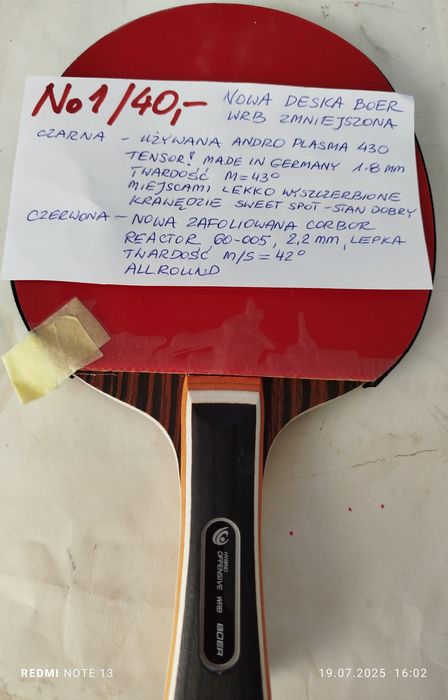 No1/40,- NOWA DESKA BOER
WRB ZMNIEJSZONA
CZARNA - UŻYWANA ANDRO PLASMA 430
TENSOR! MADE IN GERMANY 1.8 mm
TWARDOŚĆ M=43°
MIEJSCAMI LEKKO WYSZCZERBIONE
KRAWĘDZIE SWEET SPOT - STAN DOBRY
CZERWONA - NOWA ZAFOLIOWANA CORBOR
REACTOR GO-005, 2,2 mm, LEPKA
TWARDOŚĆ M/S = 42°
ALLROUND
HYBRID
OFFENSIVE WRB BOER
REDMI NOTE 13
19.07.2025 16:02